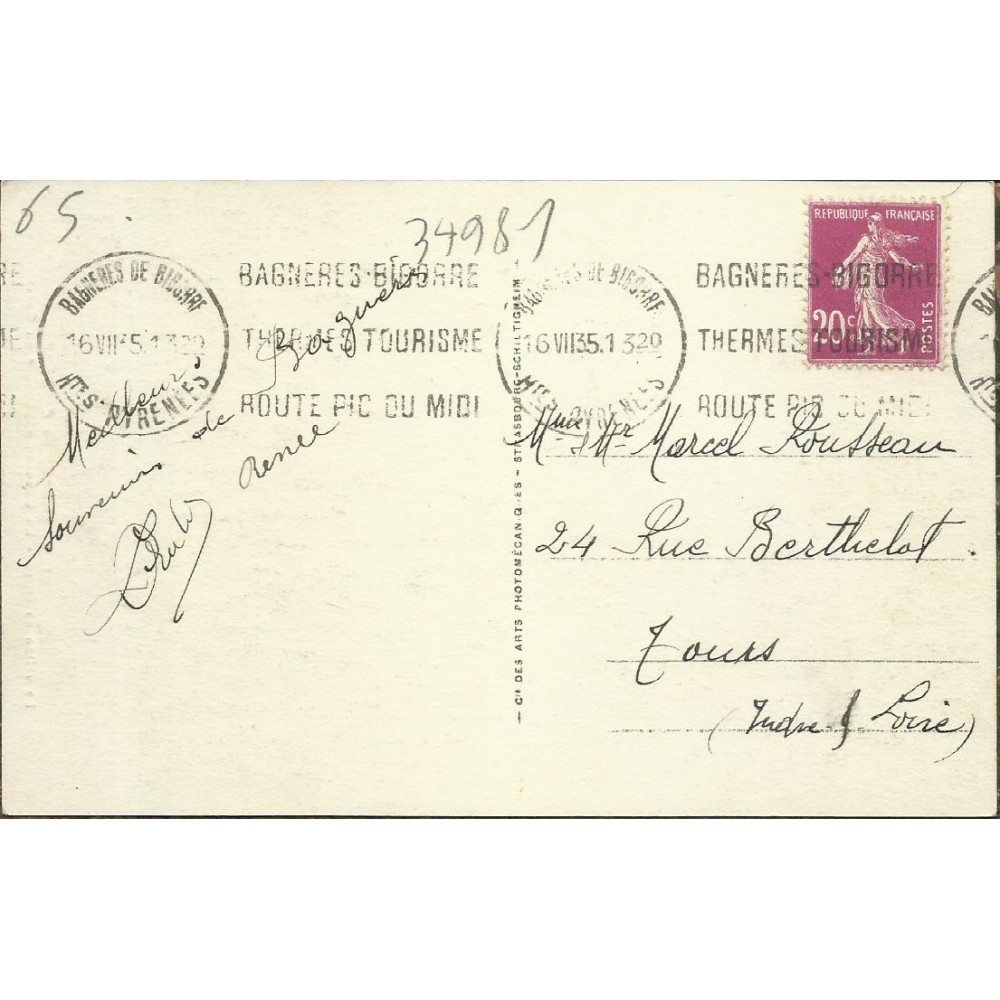 65.
34981
REPUBLIQUE FRANÇAISE
20c
POSTES
BAGNERES DE BIGORRE
16 VII 35.1320
HTES-PYRENEES
BAGNERES-BIGORRE
THERMES TOURISME
ROUTE PIC DU MIDI
BAGNERES DE BIGORRE
16 VII 35.1320
HTES-PYRENEES
BAGNERES-BIGORRE
THERMES TOURISME
ROUTE PIC DU MIDI
Meilleurs
Souvenirs de
Renée
Cie DES ARTS PHOTOMÉCANIQUES - STRASBOURG-SCHILTIGHEIM
Mme & Mr Marcel Rousseau
24 Rue Berthelot.
Tours
(Indre & Loire)